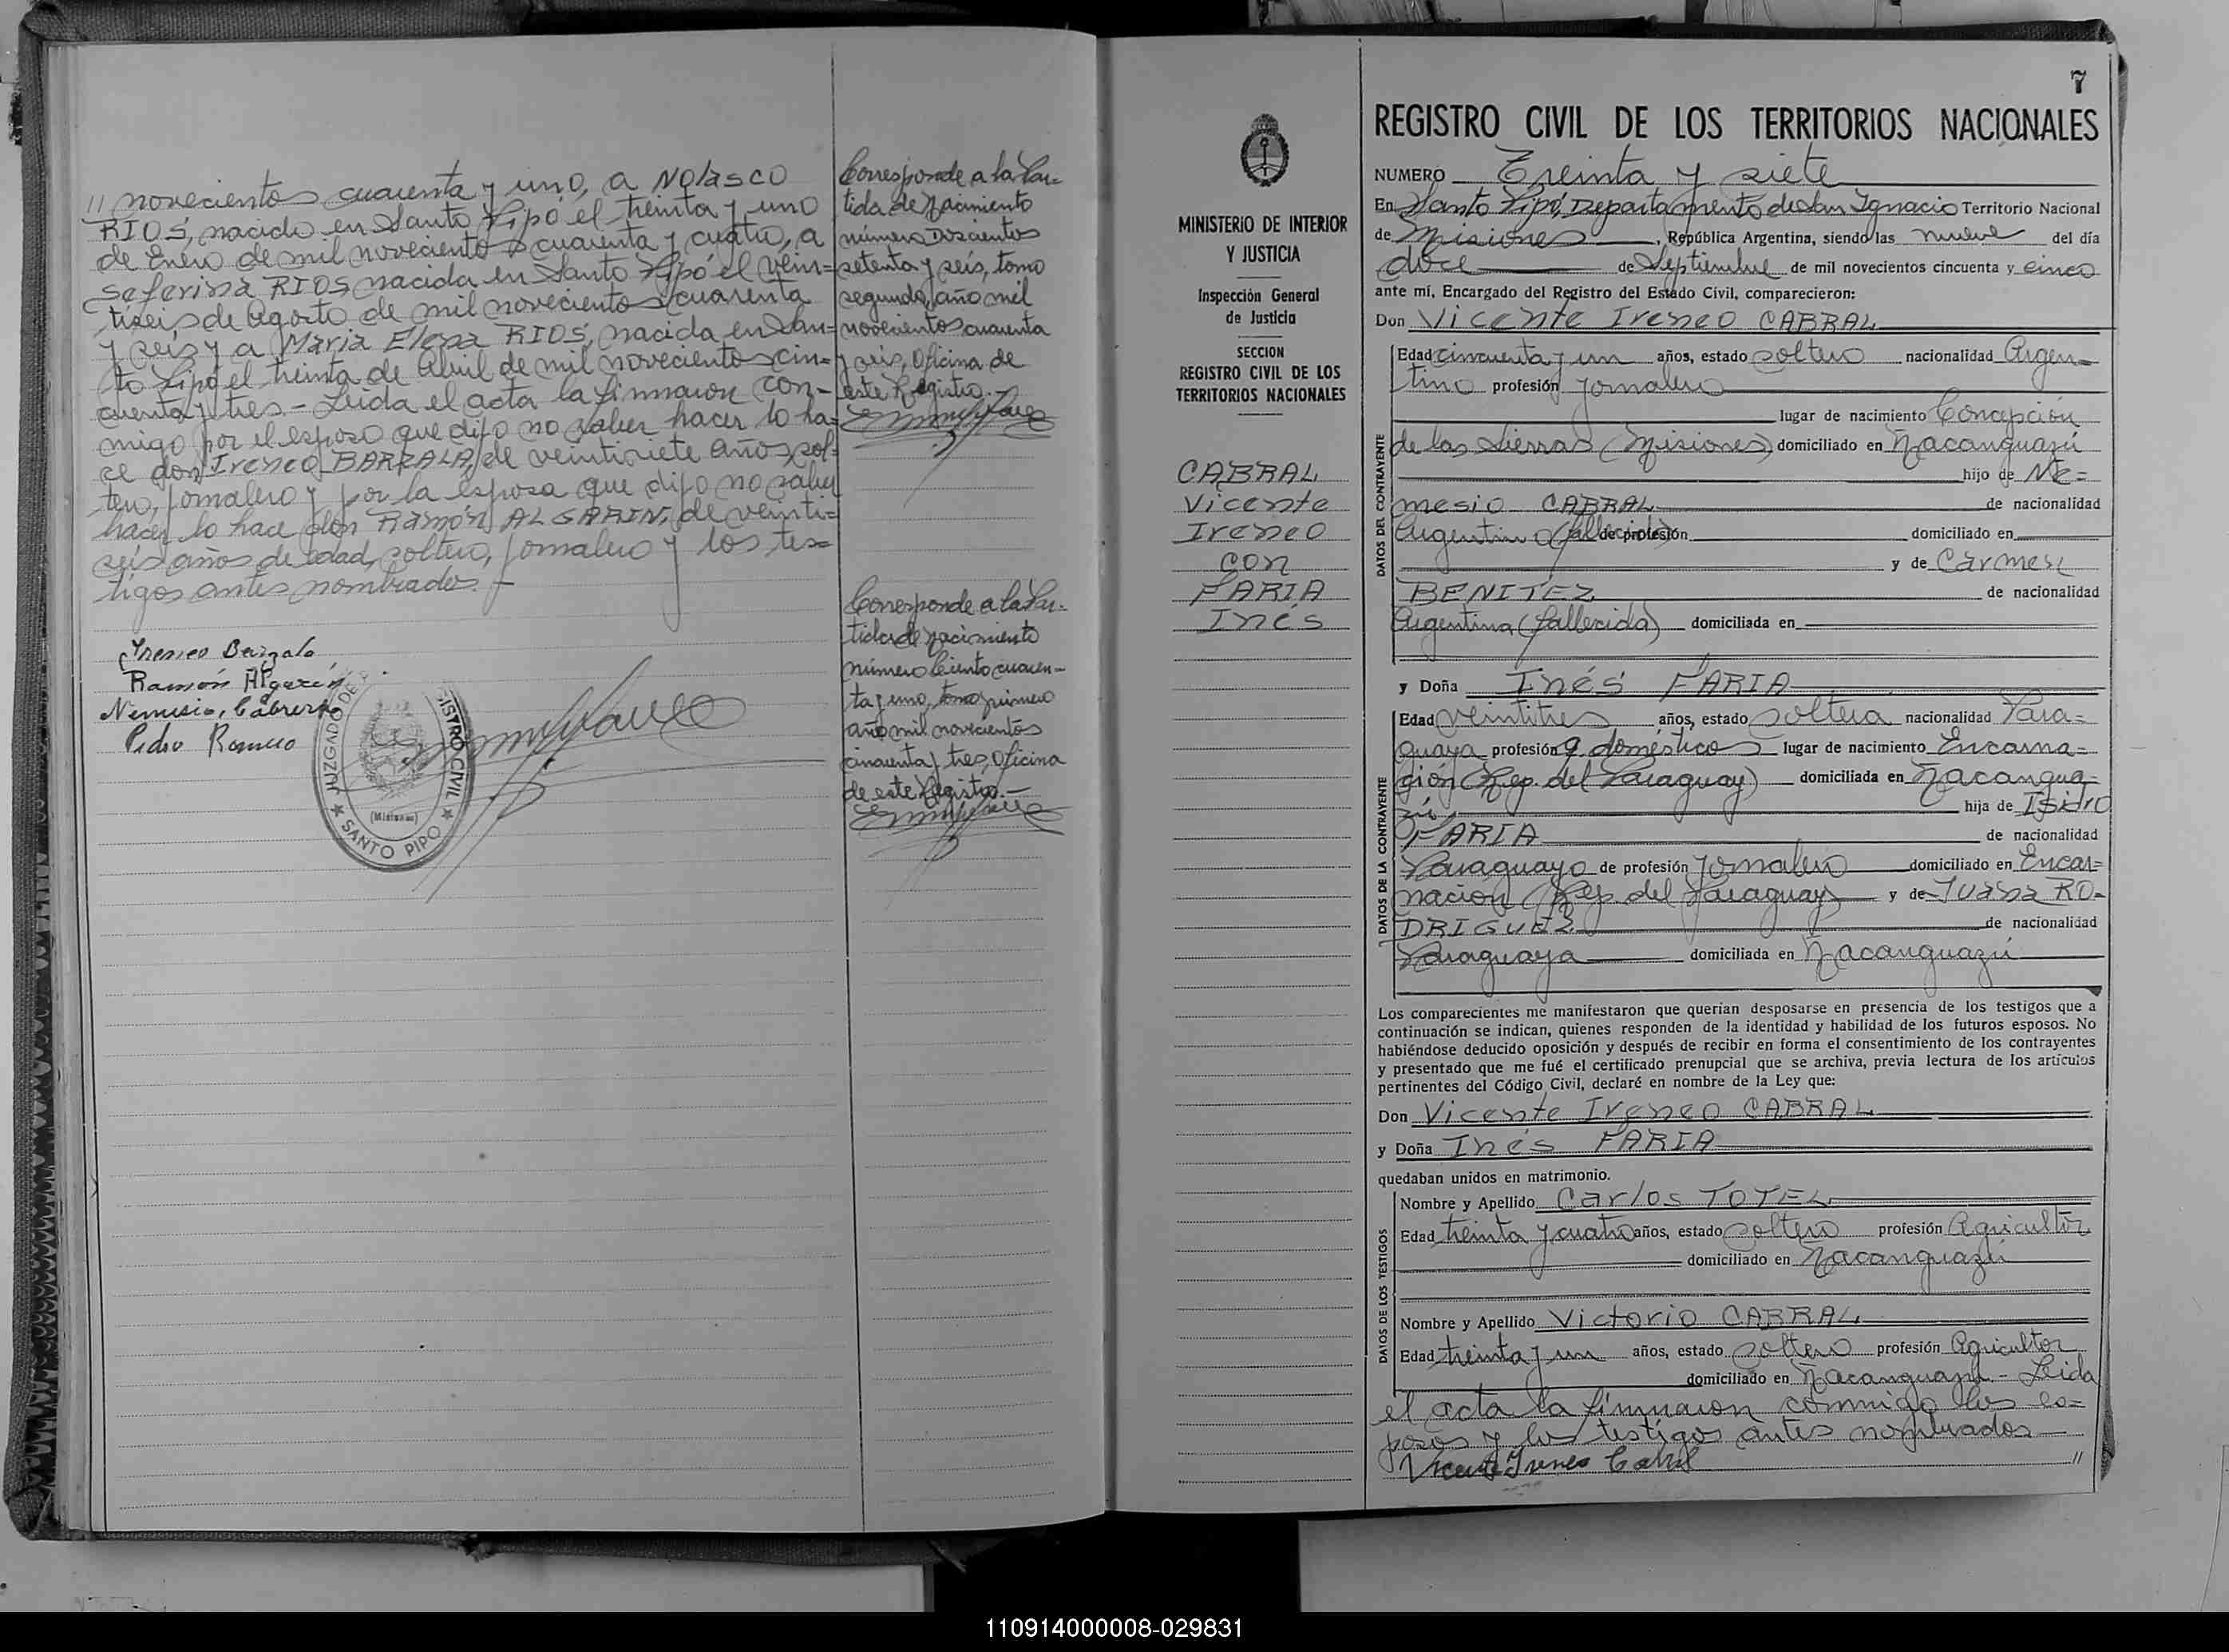 // novecientos cuarenta y uno, a NOlasco
RIOS, nacido en Santo Pipó el treinta y uno
de Enero de mil novecientos cuarenta y cuatro, a
Seferina RIOS nacida en Santo Pipó el vein=
tiseis de Agosto de mil novecientos cuarenta
y seis y a Maria Elena RIOS, nacida en San=
to Pipó el treinta de Abril de mil novecientos cin=
cuenta y tres.- Leida el acta la firmaron con-
migo por el esposo que dijo no saber hacer lo ha=
ce don Ireneo BARZALA, de veintisiete años sol=
tero, jornalero y por la esposa que dijo no saber
hacer lo hace don Ramón ALGARIN, de veinti=
seis años de edad, soltero, jornalero y los tes=
tigos antes nombrados.-
Ireneo Barzala
Ramón Algarin
Nemesio, Cabrera
Pedro Romero
JUZGADO DE
REGISTRO CIVIL
(Misiones)
★ SANTO PIPO ★
Corresponde a la Par=
tida de Nacimiento
número Doscientos
setenta y seis, tomo
segundo, año mil
novecientos cuarenta
y seis, Oficina de
este Registro.-
Corresponde a la Par-
tida de Nacimiento
número Ciento cuaren-
ta y uno, tomo primero
año mil novecientos
cincuenta y tres, Oficina
de este Registro.-
MINISTERIO DE INTERIOR
Y JUSTICIA
Inspección General
de Justicia
SECCION
REGISTRO CIVIL DE LOS
TERRITORIOS NACIONALES
CABRAL
Vicente
Ireneo
con
FARIA
Inés
7
REGISTRO CIVIL DE LOS TERRITORIOS NACIONALES
NUMERO Treinta y siete
En Santo Pipó, Departamento de San Ignacio Territorio Nacional
de Misiones, República Argentina, siendo las nueve del día
doce de Septiembre de mil novecientos cincuenta y cinco
ante mí, Encargado del Registro del Estado Civil, comparecieron:
Don Vicente Ireneo CABRAL
DATOS DEL CONTRAYENTE
Edad cincuenta y un años, estado soltero nacionalidad Argen=
tino profesión jornalero
lugar de nacimiento Concepción
de las Sierras (Misiones) domiciliado en Ñacanguazú
hijo de Ne=
mesio CABRAL de nacionalidad
Argentino (fallecido) de profesión domiciliado en
y de Carmen
BENITEZ de nacionalidad
Argentina (fallecida) domiciliada en
y Doña Inés FARIA
DATOS DE LA CONTRAYENTE
Edad veintitres años, estado soltera nacionalidad Para=
guaya profesión q. domésticos lugar de nacimiento Encarna=
ción (Rep. del Paraguay) domiciliada en Ñacangua=
zú hija de Isidro
FARIA de nacionalidad
Paraguayo de profesión Jornalero domiciliado en Encar=
nación (Rep. del Paraguay) y de Juana RO=
DRIGUEZ de nacionalidad
Paraguaya domiciliada en Ñacanguazú
Los comparecientes me manifestaron que querían desposarse en presencia de los testigos que a
continuación se indican, quienes responden de la identidad y habilidad de los futuros esposos. No
habiéndose deducido oposición y después de recibir en forma el consentimiento de los contrayentes
y presentado que me fué el certificado prenupcial que se archiva, previa lectura de los artículos
pertinentes del Código Civil, declaré en nombre de la Ley que:
Don Vicente Ireneo CABRAL
y Doña Inés FARIA
quedaban unidos en matrimonio.
DATOS DE LOS TESTIGOS
Nombre y Apellido Carlos TOTEL
Edad treinta y cuatro años, estado soltero profesión Agricultor
domiciliado en Ñacanguazú
Nombre y Apellido Victorio CABRAL
Edad treinta y un años, estado soltero profesión Agricultor
domiciliado en Ñacanguazú - Leida
el acta la firmaron conmigo los es=
posos y los testigos antes nombrados
Vicente Ireneo Cabral //
110914000008-029831